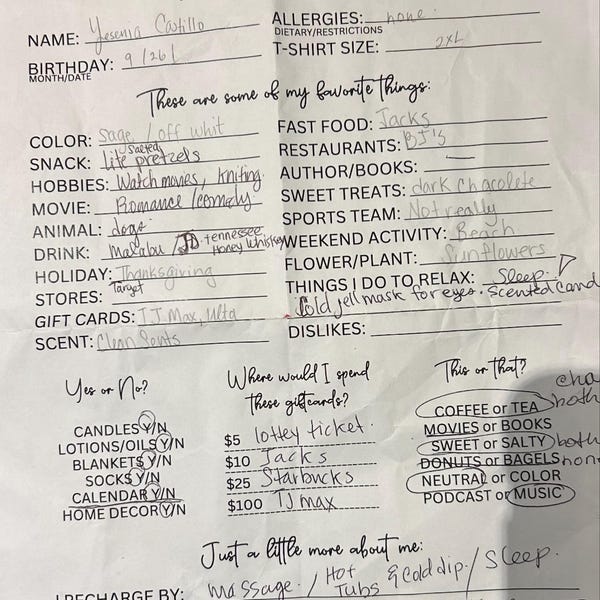 NAME: Yesenia Castillo
ALLERGIES: none.
DIETARY/RESTRICTIONS
BIRTHDAY: 9/26/
MONTH/DATE
T-SHIRT SIZE: 2XL
These are some of my favorite things:
COLOR: sage / off whit
FAST FOOD: Jacks
SNACK: lite salted pretzels
RESTAURANTS: BJ's
HOBBIES: Watch movies, kniting.
AUTHOR/BOOKS: —
MOVIE: Romance / comedy
SWEET TREATS: dark chacolete
ANIMAL: dogs
SPORTS TEAM: Not really
DRINK: Malabu / JD - Tennessee Honey Whiskey
WEEKEND ACTIVITY: Beach
HOLIDAY: Thanksgiving
FLOWER/PLANT: Sunflowers
STORES: Target
THINGS I DO TO RELAX: Sleep.
Cold jell mask for eyes. Scented cand
GIFT CARDS: TJ Max, Ulta
SCENT: Clean Sents
DISLIKES:
Yes or No?
CANDLES Y/N
LOTIONS/OILS Y/N
BLANKETS Y/N
SOCKS Y/N
CALENDAR Y/N
HOME DECOR Y/N
Where would I spend
these giftcards?
$5 lottey ticket.
$10 Jacks
$25 Starbucks
$100 TJ max
This or that?
COFFEE or TEA both
MOVIES or BOOKS
SWEET or SALTY both
DONUTS or BAGELS non
NEUTRAL or COLOR
PODCAST or MUSIC
Just a little more about me:
I RECHARGE BY: massage. / Hot Tubs & cold dip. / Sleep.